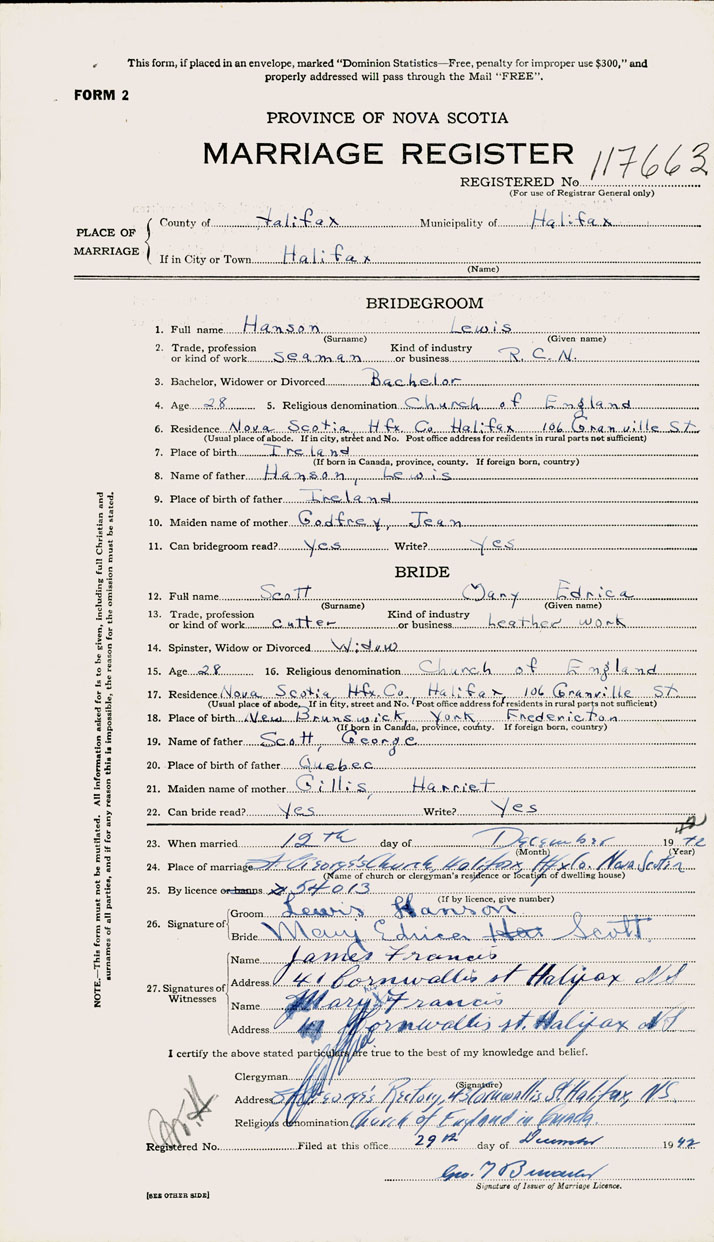 This form, if placed in an envelope, marked "Dominion Statistics—Free, penalty for improper use $300," and
properly addressed will pass through the Mail "FREE".
FORM 2
PROVINCE OF NOVA SCOTIA
MARRIAGE REGISTER
117663
REGISTERED No.
(For use of Registrar General only)
PLACE OF MARRIAGE
County of Halifax Municipality of Halifax
If in City or Town Halifax
(Name)
BRIDEGROOM
1. Full name Hanson Lewis
(Surname) (Given name)
2. Trade, profession or kind of work seaman Kind of industry or business R.C.N.
3. Bachelor, Widower or Divorced Bachelor
4. Age 28 5. Religious denomination Church of England
6. Residence Nova Scotia Hfx Co Halifax 106 Granville St
(Usual place of abode. If in city, street and No. Post office address for residents in rural parts not sufficient)
7. Place of birth Ireland
(If born in Canada, province, county. If foreign born, country)
8. Name of father Hanson, Lewis
9. Place of birth of father Ireland
10. Maiden name of mother Godfrey, Jean
11. Can bridegroom read? Yes Write? Yes
BRIDE
12. Full name Scott Mary Edrica
(Surname) (Given name)
13. Trade, profession or kind of work cutter Kind of industry or business Leather work
14. Spinster, Widow or Divorced Widow
15. Age 28 16. Religious denomination Church of England
17. Residence Nova Scotia, Hfx. Co, Halifax, 106 Granville St.
(Usual place of abode. If in city, street and No. Post office address for residents in rural parts not sufficient)
18. Place of birth New Brunswick, York Fredericton
(If born in Canada, province, county. If foreign born, country)
19. Name of father Scott, George
20. Place of birth of father Quebec
21. Maiden name of mother Gillis, Harriet
22. Can bride read? Yes Write? Yes
23. When married 12th day of December 1942
(Month) (Year)
24. Place of marriage St George's Church, Halifax, Hfx Co. Nova Scotia
(Name of church or clergyman's residence or location of dwelling house)
25. By licence or banns 54013
(If by licence, give number)
26. Signature of
Groom Lewis Hanson
Bride Mary Edrica Scott
27. Signatures of Witnesses
Name James Francis
Address 41 Cornwallis st Halifax NS
Name Mary Francis
Address Cornwallis st. Halifax NS
I certify the above stated particulars are true to the best of my knowledge and belief.
Clergyman
(Signature)
Address St George's Rectory, Cornwallis St. Halifax, N.S.
Religious denomination Church of England in Canada
Registered No. Filed at this office 29th day of December 1942
Geo.
Signature of Issuer of Marriage Licence.
[SEE OTHER SIDE]
NOTE.—This form must not be mutilated. All information asked for is to be given, including full Christian and
surnames of all parties, and if for any reason this is impossible, the reason for the omission must be stated.